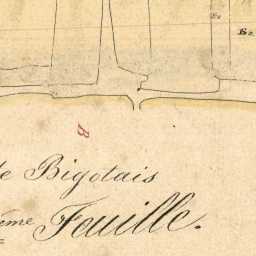 B
de Bigotais
ème Feuille.